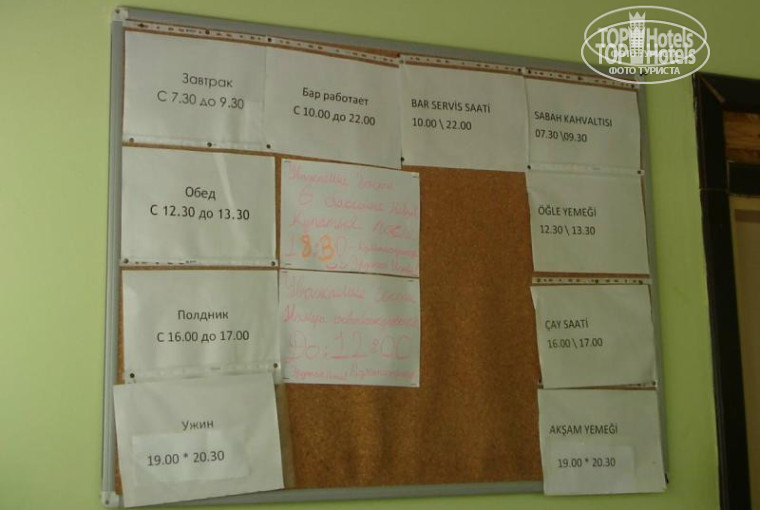 TOP Hotels
TOP Hotels
ФОТО ТУРИСТА
Завтрак
С 7.30 до 9.30
Бар работает
С 10.00 до 22.00
BAR SERVİS SAATİ
10.00 \ 22.00
SABAH KAHVALTISI
07.30 \09.30
Обед
С 12.30 до 13.30
ÖĞLE YEMEĞİ
12.30 \ 13.30
Полдник
С 16.00 до 17.00
До 12:00
ÇAY SAATİ
16.00 \ 17.00
Ужин
19.00 * 20.30
AKŞAM YEMEĞİ
19.00 * 20.30